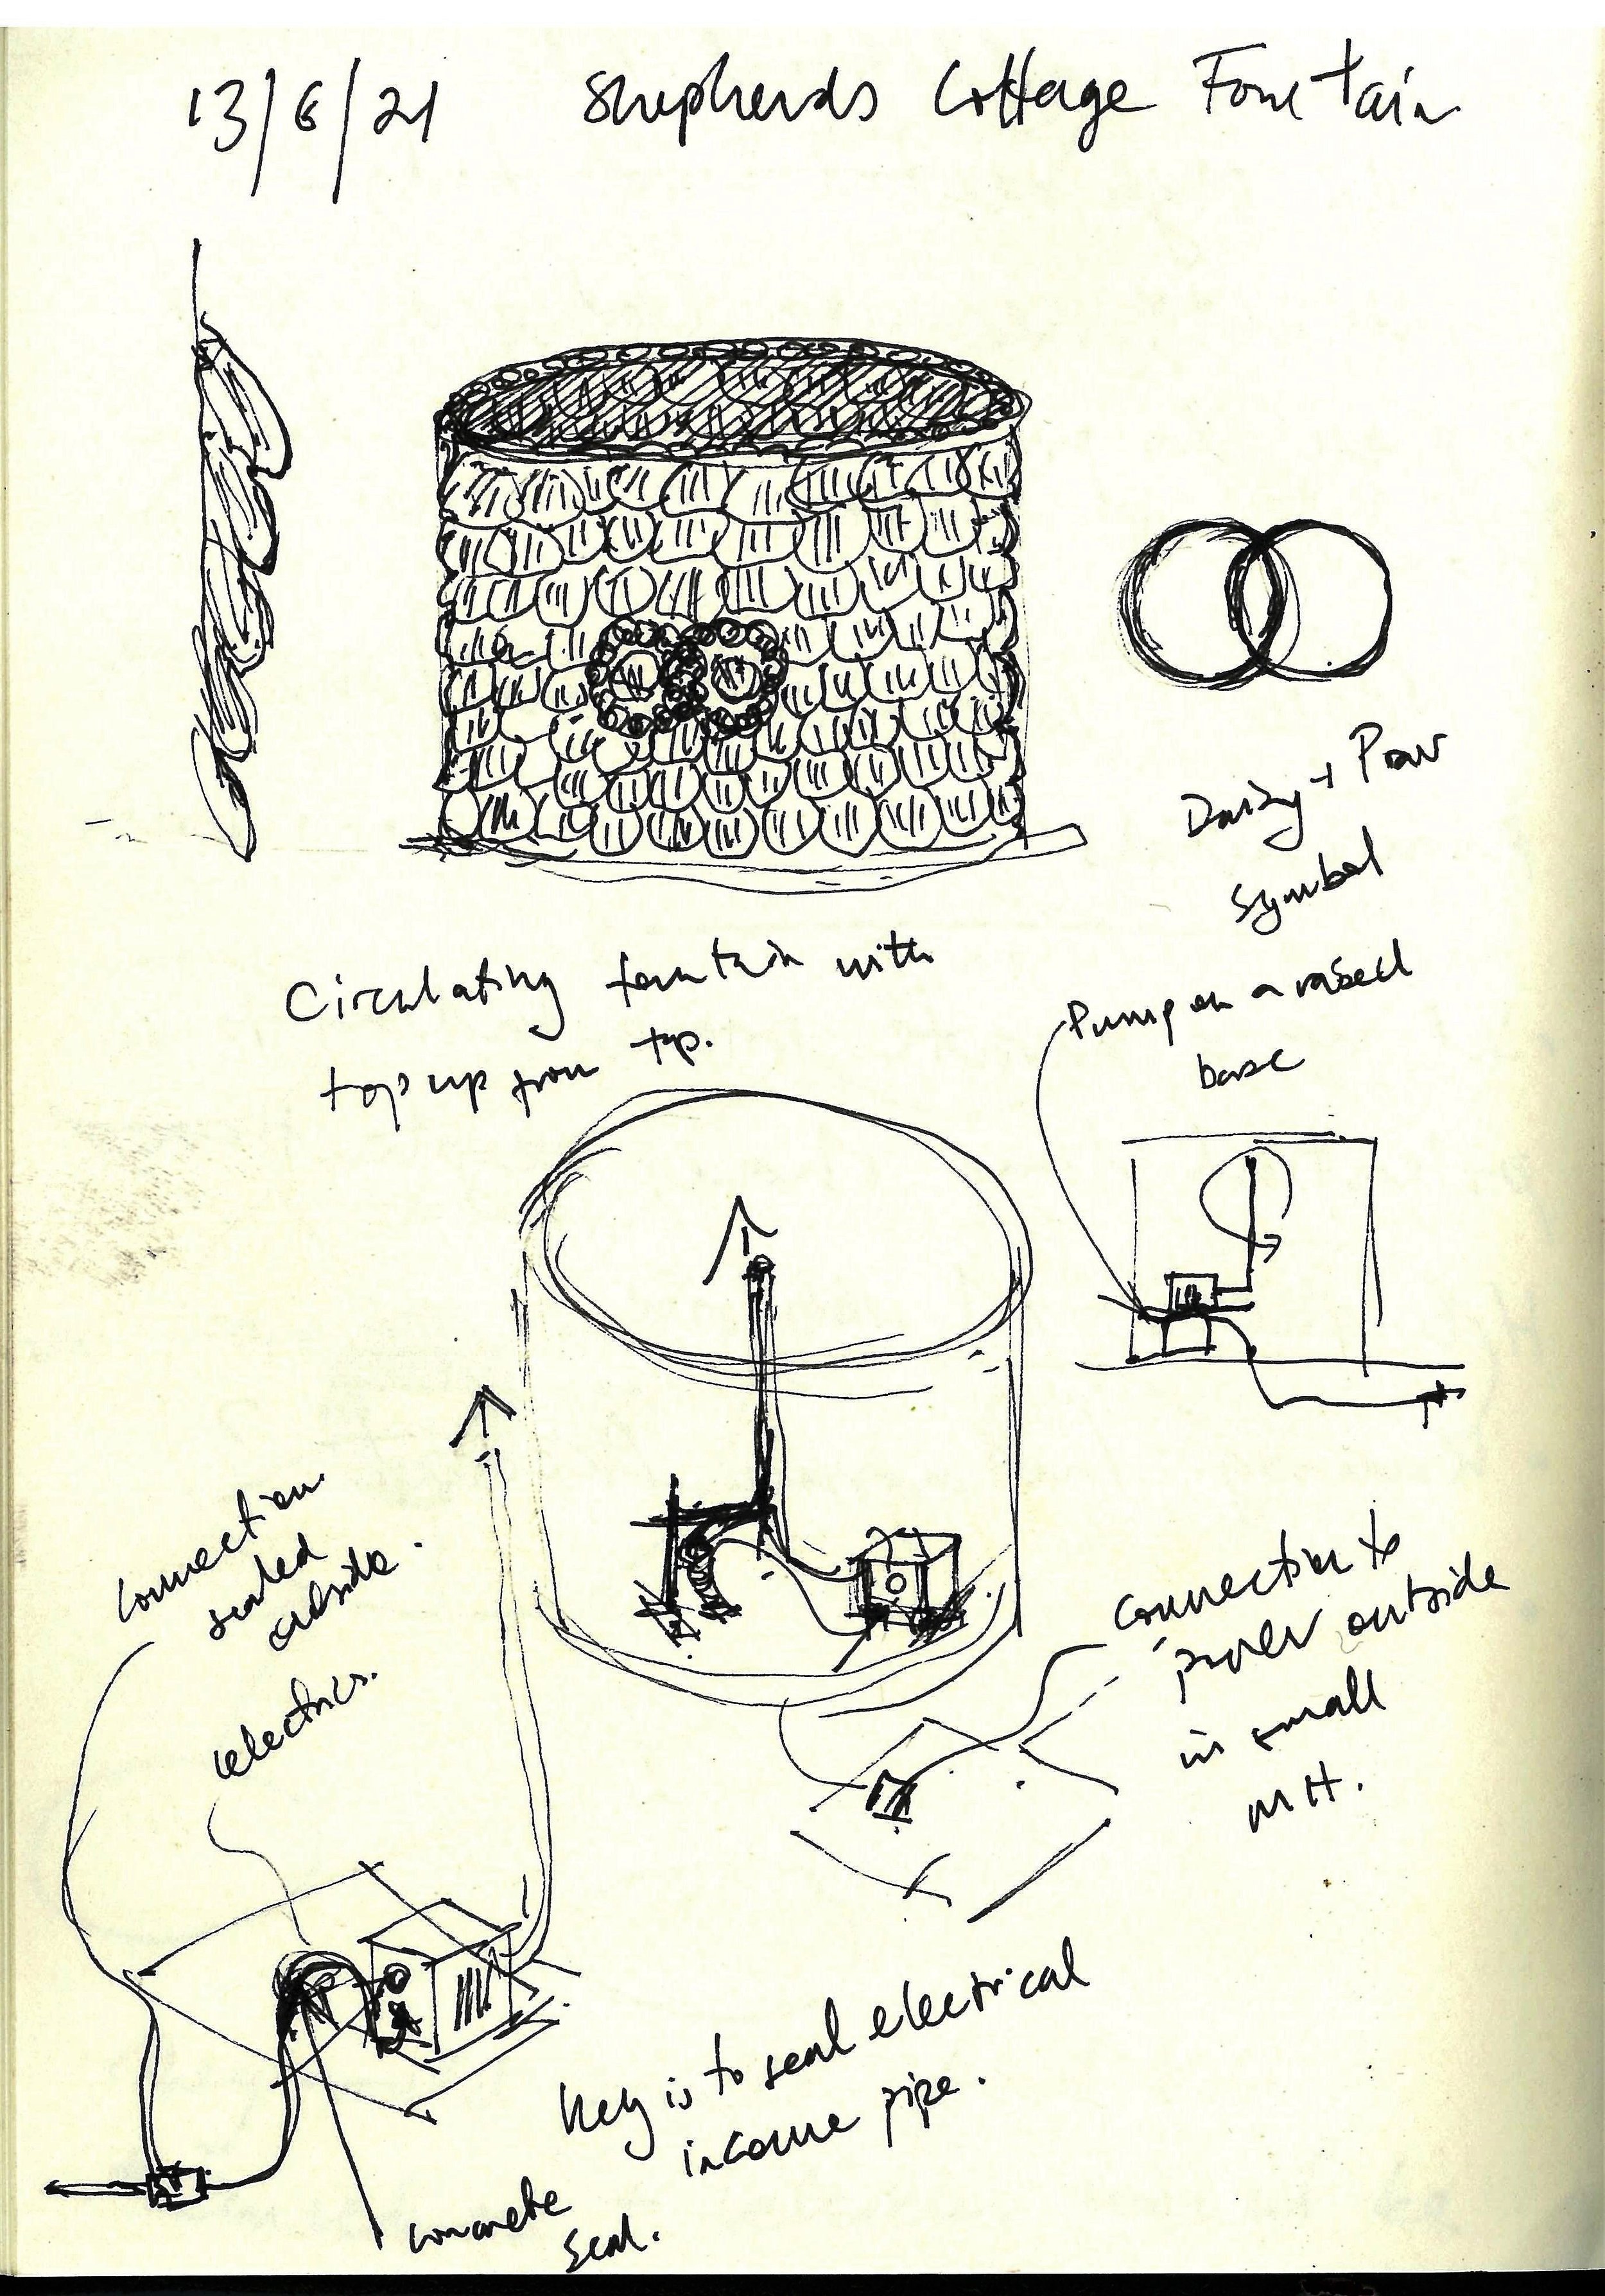 13/6/21 Shepherds Cottage Fountain
Daisy + Prav
Symbol
Circulating fountain with
top up from tap.
Pump on a raised
base
Connection
sealed
outside.
electrics.
Connection to
power outside
in small
MH.
Key is to seal electrical
income pipe.
Concrete
Seal.